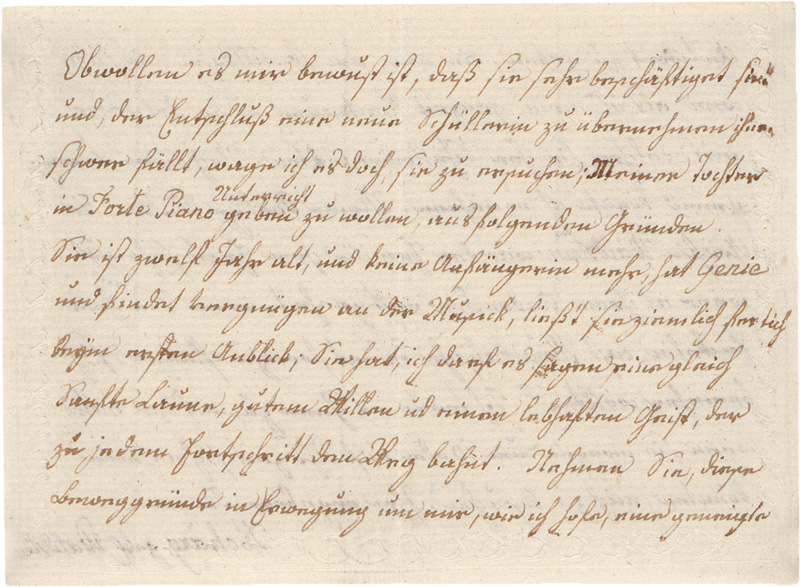 Obwollen es mir bewust ist, daß sie sehr beschäftiget sind
und, der Entschluß eine neue Schüllerin zu übernehmen ihnen
schwer fällt, wage ich es doch, sie zu ersuchen; Meiner Tochter
in Forte Piano Unterricht geben zu wollen, aus folgenden Gründen.
Sie ist zwelf Jahr alt, und keine Anfängerin mehr, hat Genie
und findet vergnügen an der Musick, ließt sie ziemlich fertich
beym ersten Anblick; Sie hat, ich darf es sagen eine gleich
Sanfte Laune, gutem Willen ud einen lebhaften Geist, der
zu jedem Fortschritt dem Weg bahnt. Nehmen Sie, diese
Beweggründe in Erwegung um mir, wie ich hofe, eine geneigte